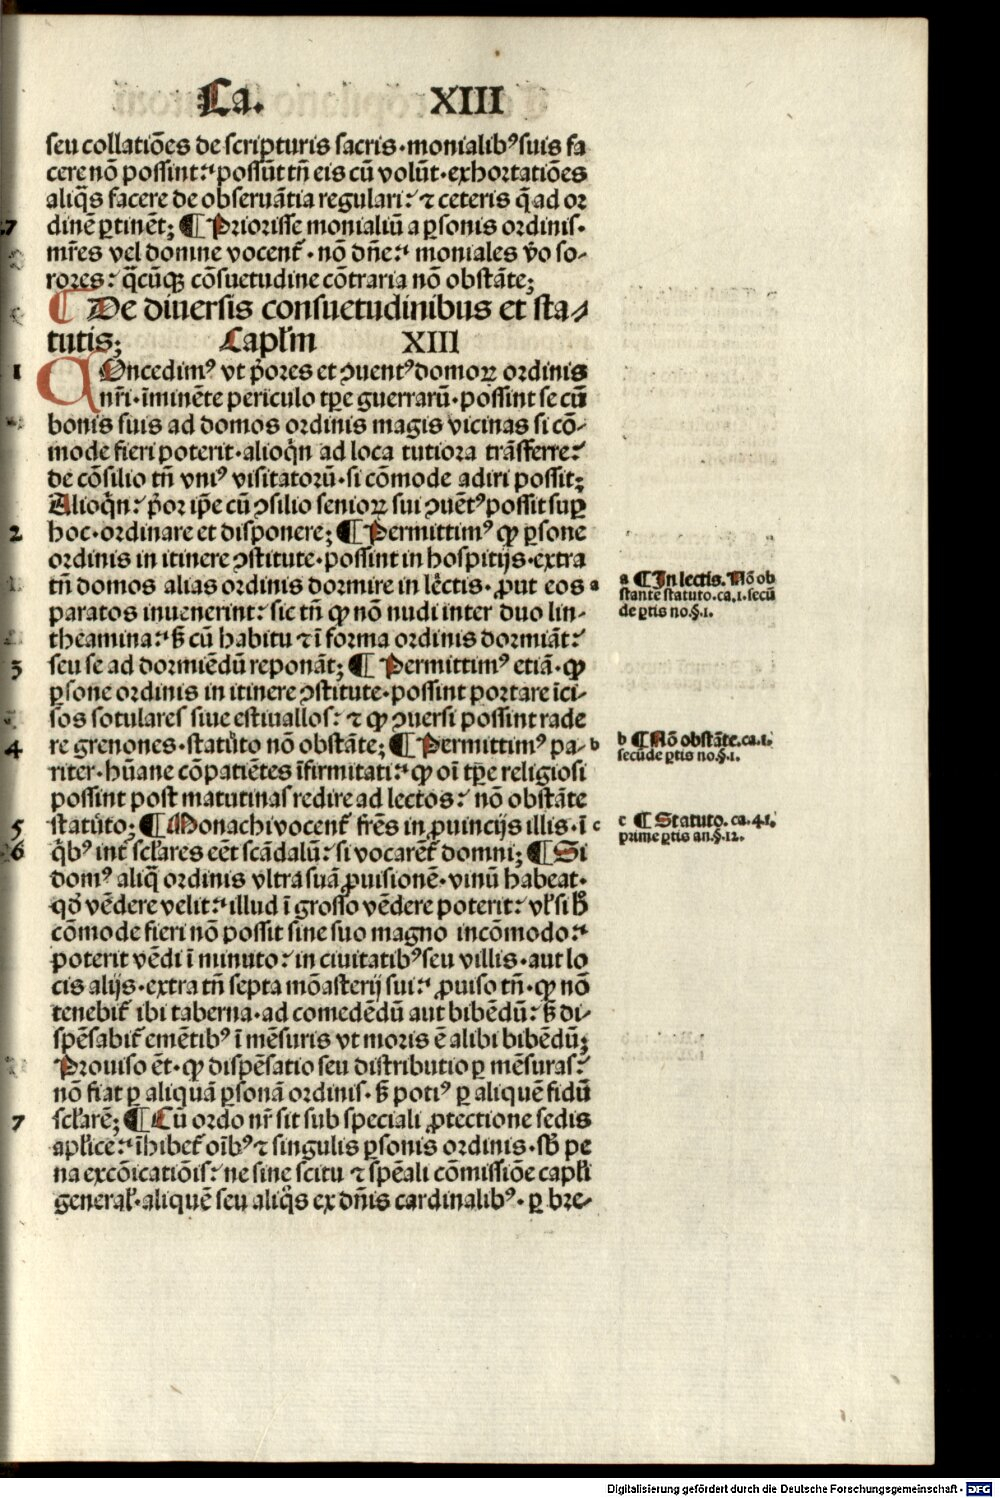 Ca. XIII
seu collatiões de scripturis sacris·monialibꝰ suis fa
cere nõ possint:' possũt tñ eis cũ volũt·exhortatiões
aliq̃s facere de obseruãtia regulari:' ⁊ ceteris q̃ ad or
dinẽ ꝑtinẽt; ¶ Priorisse monialiũ a ꝑsonis ordinis·
mr̃es vel domine vocent᷑·nõ dñe:' moniales ṽo so-
rores:' q̃cũqꝫ cõsuetudine cõtraria nõ obstãte;
¶ De diuersis consuetudinibus et sta-
tutis; Capl̃m XIII
1 COncedimꝰ vt p̃ores et ꝯuentꝰ domoꝝ ordinis
nr̃i·ĩminẽte periculo tꝑe guerrarũ·possint se cũ
bonis suis ad domos ordinis magis vicinas si cõ-
mode fieri poterit·alioq̃n ad loca tutiora trãsferre:'
de cõsilio tñ vniꝰ visitatorũ·si cõmode adiri possit;
Alioq̃n:' p̃or ip̃e cũ ꝯsilio senioꝝ sui ꝯuẽtꝰ possit suꝑ
2 hoc·ordinare et disponere; ¶ Permittimꝰ ꝙ ꝑsone
ordinis in itinere ꝯstitute·possint in hospitijs·extra
tñ domos alias ordinis dormire in lectis·ꝓut eos a
paratos inuenerint:' sic tñ ꝙ nõ nudi inter duo lin-
theamina:' sꝫ cũ habitu ⁊ ĩ forma ordinis dormiãt:'
3 seu se ad dormiẽdũ reponãt; ¶ Permittimꝰ etiã·ꝙ
ꝑsone ordinis in itinere ꝯstitute·possint portare ĩci-
sos sotulares siue estiuallos:' ⁊ ꝙ ꝯuersi possint rade
4 re grenones·statuto nõ obstãte; ¶ Permittimꝰ pa- b
riter·hũane cõpatiẽtes ĩfirmitati:' ꝙ oĩ tꝑe religiosi
possint post matutinas redire ad lectos:' nõ obstãte
5 statuto; ¶ Monachi vocent᷑ fr̃es in ꝓuincijs illis·ĩ c
6 q̃bꝰ int᷑ scl̃ares eẽt scãdalũ:' si vocarẽt᷑ domni; ¶ Si
domꝰ aliq̃ ordinis vltra suã ꝓuisionẽ·vinũ habeat·
qð vẽdere velit:' illud ĩ grosso vẽdere poterit:' vl̃ si hͦ
cõmode fieri nõ possit sine suo magno incõmodo:'
poterit vẽdi ĩ minuto:' in ciuitatibꝰ seu villis·aut lo
cis alijs·extra tñ septa mõasterij sui:' ꝓuiso tñ·ꝙ nõ
tenebit᷑ ibi taberna·ad comedẽdũ aut bibẽdũ:' sꝫ di-
spẽsabit᷑ emẽtibꝰ ĩ mẽsuris vt moris ẽ alibi bibẽdũ;
Prouiso ẽt·ꝙ dispẽsatio seu distributio ꝑ mẽsuras:'
nõ fiat ꝑ aliquã ꝑsonã ordinis·sꝫ potiꝰ ꝑ aliquẽ fidũ
7 scl̃arẽ; ¶ Cũ ordo nr̃ sit sub speciali ꝓtectione sedis
apl̃ice:' ĩhibet᷑ oĩbꝰ ⁊ singulis ꝑsonis ordinis·sb̃ pe
na excõicatiõis:' ne sine scitu ⁊ sp̃eali cõmissiõe capl̃i
general̃·aliquẽ seu aliq̃s ex dñis cardinalibꝰ·ꝑ bre-
a ¶ In lectis. Nõ ob
stante statuto.ca.1.secũ
de ꝑtis no.§.1.
b ¶ Nõ obstãte.ca.1.
secũde ꝑtis no.§.1.
c ¶ Statuto.ca.41.
prime ꝑtis an.§.12.
Digitalisierung gefördert durch die Deutsche Forschungsgemeinschaft - DFG